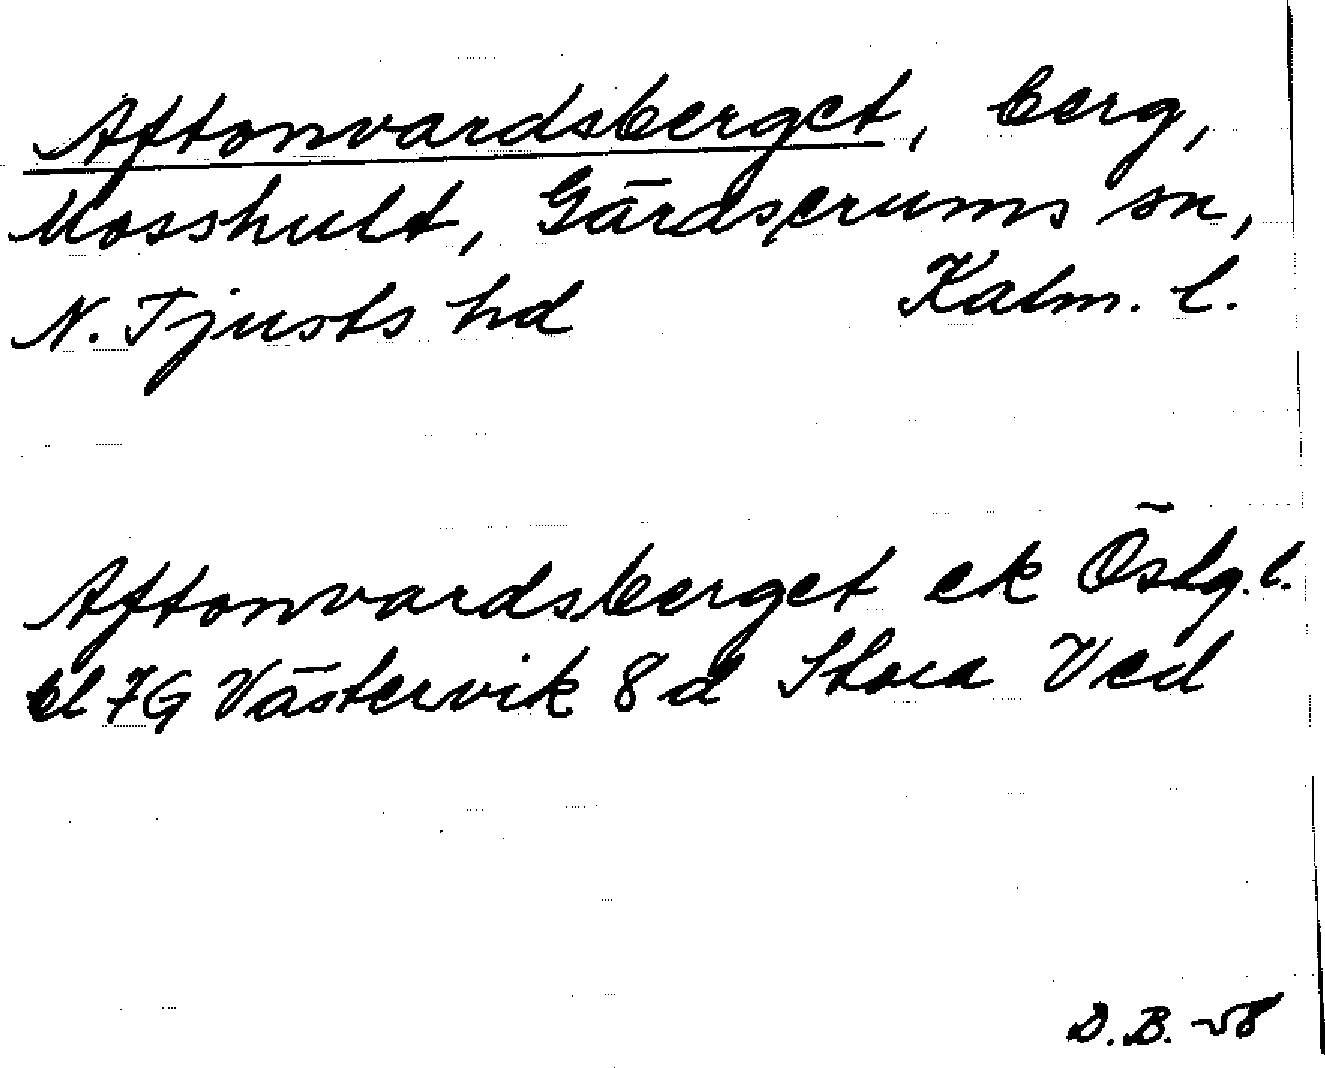 Aftonvardsberget, berg,
Mosshult, Gärdserums sn,
N. Tjusts hd Kalm. l.
Aftonvardsberget ek Östg. l.
bl 7G Västervik 8 d Stora Ved
D.B. -58